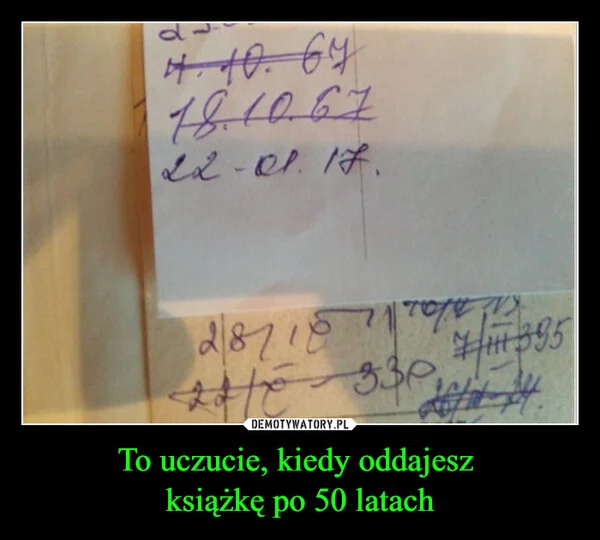 4. 10. 67
18. 10. 67
22 - 01. 17.
28/
22/ 330
7/III 395
DEMOTYWATORY.PL
To uczucie, kiedy oddajesz
książkę po 50 latach